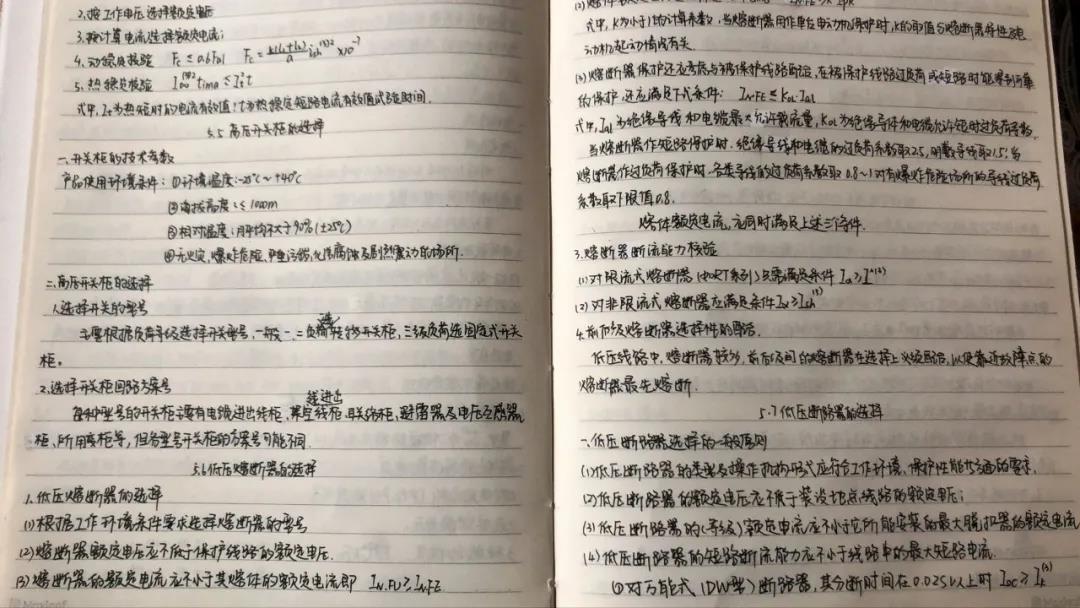 2.按工作电压选择额定电压
3.按计算电流选择额定电流;
4.动稳定校验
5.热稳定校验
5.5 高压开关柜的选择
一、开关柜的技术参数
产品使用环境条件: ①环境温度:-25℃~+40℃
②海拔高度:≤1000m
③相对温度:月平均不大于90%(±25℃)
④无火灾、爆炸危险、严重污秽、化学腐蚀及剧烈震动的场所.
二、高压开关柜的选择
1.选择开关的型号
主要根据负荷等级选择开关型号,一般一、二负荷选移开关柜,三级负荷选固定式开关
柜。
2.选择开关柜回路方案号
每种型号的开关柜主要有电缆进出线柜、架空线进出柜、母联柜、避雷器及电压互感器
柜、所用变柜等,但各型号开关柜的方案号可能不同.
5.6 低压熔断器的选择
1.低压熔断器的选择
(1)根据工作环境条件要求选择熔断器的型号
(2)熔断器额定电压应不低于保护线路的额定电压.
(3)熔断器的额定电流应不小于其熔体的额定电流即 IN.FU≥IN.FE
式中,K为小于1的计算系数,当熔断器用作单台电动机保护时,K的取值与熔断器特性及电
动机起动情况有关.
(3)熔断器保护还应考虑与被保护线路配合,在被保护线路过负荷或短路时能得到可靠
的保护,还应满足下式条件: IN.FE≤KOL·Ial
式中,Ial为绝缘导线和电缆最大允许载流量,KOL为绝缘导体和电缆允许短时过负荷系数.
当熔断器作短路保护时,绝缘导线和电缆的过负荷系数取2.5,明敷导线取1.5;当
熔断器作过负荷保护时,各类导线的过负荷系数取0.8~1,对有爆炸危险场所的导线过负荷
系数取下限值0.8.
熔体额定电流,应同时满足上述三个条件.
3.熔断器断流能力校验
(1)对限流式熔断器(如RT系列)只需满足条件
(2)对非限流式熔断器应满足条件
4.前后级熔断器选择性的配合.
低压线路中,熔断器较多,前后级间的熔断器在选择上必须配合,以使靠近故障点的
熔断器最先熔断.
5.7 低压断路器的选择
一、低压断路器选择的一般原则
(1)低压断路器的类型及操作机构形式应符合工作环境、保护性能等方面的要求.
(2)低压断路器的额定电压应不低于装设地点线路的额定电压;
(3)低压断路器的(等级)额定电流应不小于它所能安装的最大脱扣器的额定电流
(4)低压断路器的短路断流能力应不小于线路中的最大短路电流.
①对万能式(DW型)断路器,其分断时间在0.02S以上时